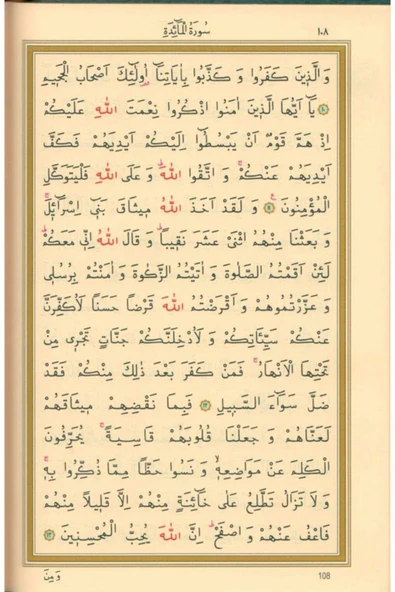 سُورَةُ الْمَائِدَةِ ١٠٨
وَ الَّذٖينَ كَفَرُوا وَ كَذَّبُوا بِاٰيَاتِنَٓا اُولٰٓئِكَ اَصْحَابُ الْجَحٖيمِ
﴿١٠﴾ يَٓا اَيُّهَا الَّذٖينَ اٰمَنُوا اذْكُرُوا نِعْمَتَ اللّٰهِ عَلَيْكُمْ
اِذْ هَمَّ قَوْمٌ اَنْ يَبْسُطُٓوا اِلَيْكُمْ اَيْدِيَهُمْ فَكَفَّ
اَيْدِيَهُمْ عَنْكُمْۚ وَ اتَّقُوا اللّٰهَۜ وَ عَلَى اللّٰهِ فَلْيَتَوَكَّلِ
الْمُؤْمِنُونَ ﴿١١﴾ وَ لَقَدْ اَخَذَ اللّٰهُ مٖيثَاقَ بَنٖٓى اِسْرَٓائٖلَۚ
وَ بَعَثْنَا مِنْهُمُ اثْنَىْ عَشَرَ نَقٖيبًاۜ وَ قَالَ اللّٰهُ اِنّٖى مَعَكُمْۜ
لَئِنْ اَقَمْتُمُ الصَّلٰوةَ وَ اٰتَيْتُمُ الزَّكٰوةَ وَ اٰمَنْتُمْ بِرُسُلٖى
وَ عَزَّرْتُمُوهُمْ وَ اَقْرَضْتُمُ اللّٰهَ قَرْضًا حَسَنًا لَاُكَفِّرَنَّ
عَنْكُمْ سَيِّئَاتِكُمْ وَ لَاُدْخِلَنَّكُمْ جَنَّاتٍ تَجْرٖى مِنْ
تَحْتِهَا الْاَنْهَارُۚ فَمَنْ كَفَرَ بَعْدَ ذٰلِكَ مِنْكُمْ فَقَدْ
ضَلَّ سَوَٓاءَ السَّبٖيلِ ﴿١٢﴾ فَبِمَا نَقْضِهِمْ مٖيثَاقَهُمْ
لَعَنَّاهُمْ وَ جَعَلْنَا قُلُوبَهُمْ قَاسِيَةًۚ يُحَرِّفُونَ
الْكَلِمَ عَنْ مَوَاضِعِهٖۙ وَ نَسُوا حَظًّا مِمَّا ذُكِّرُوا بِهٖۚ
وَ لَا تَزَالُ تَطَّلِعُ عَلٰى خَٓائِنَةٍ مِنْهُمْ اِلَّا قَلٖيلًا مِنْهُمْ
فَاعْفُ عَنْهُمْ وَ اصْفَحْۜ اِنَّ اللّٰهَ يُحِبُّ الْمُحْسِنٖينَ ﴿١٣﴾
وَ مِنَ 108